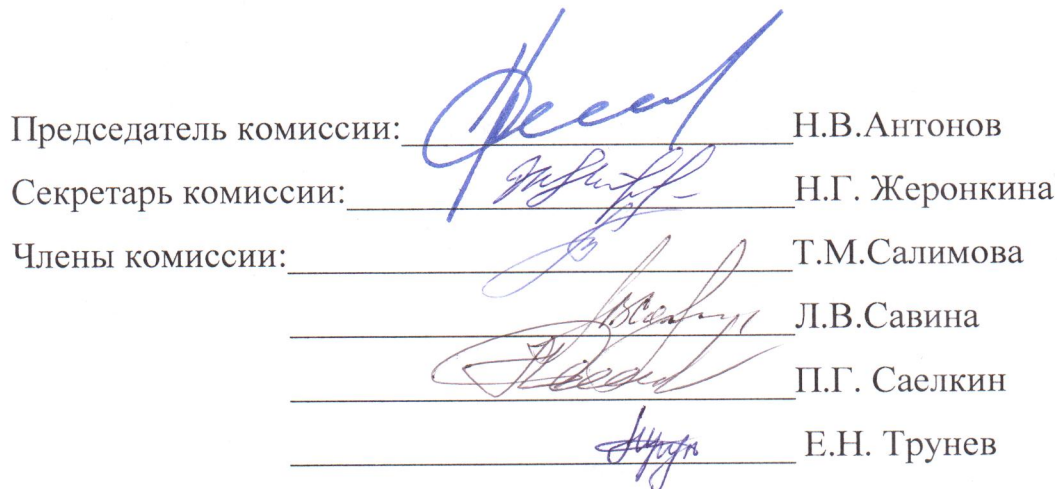 Председатель комиссии: Н.В.Антонов
Секретарь комиссии: Н.Г. Жеронкина
Члены комиссии: Т.М.Салимова
Л.В.Савина
П.Г. Саелкин
Е.Н. Трунев